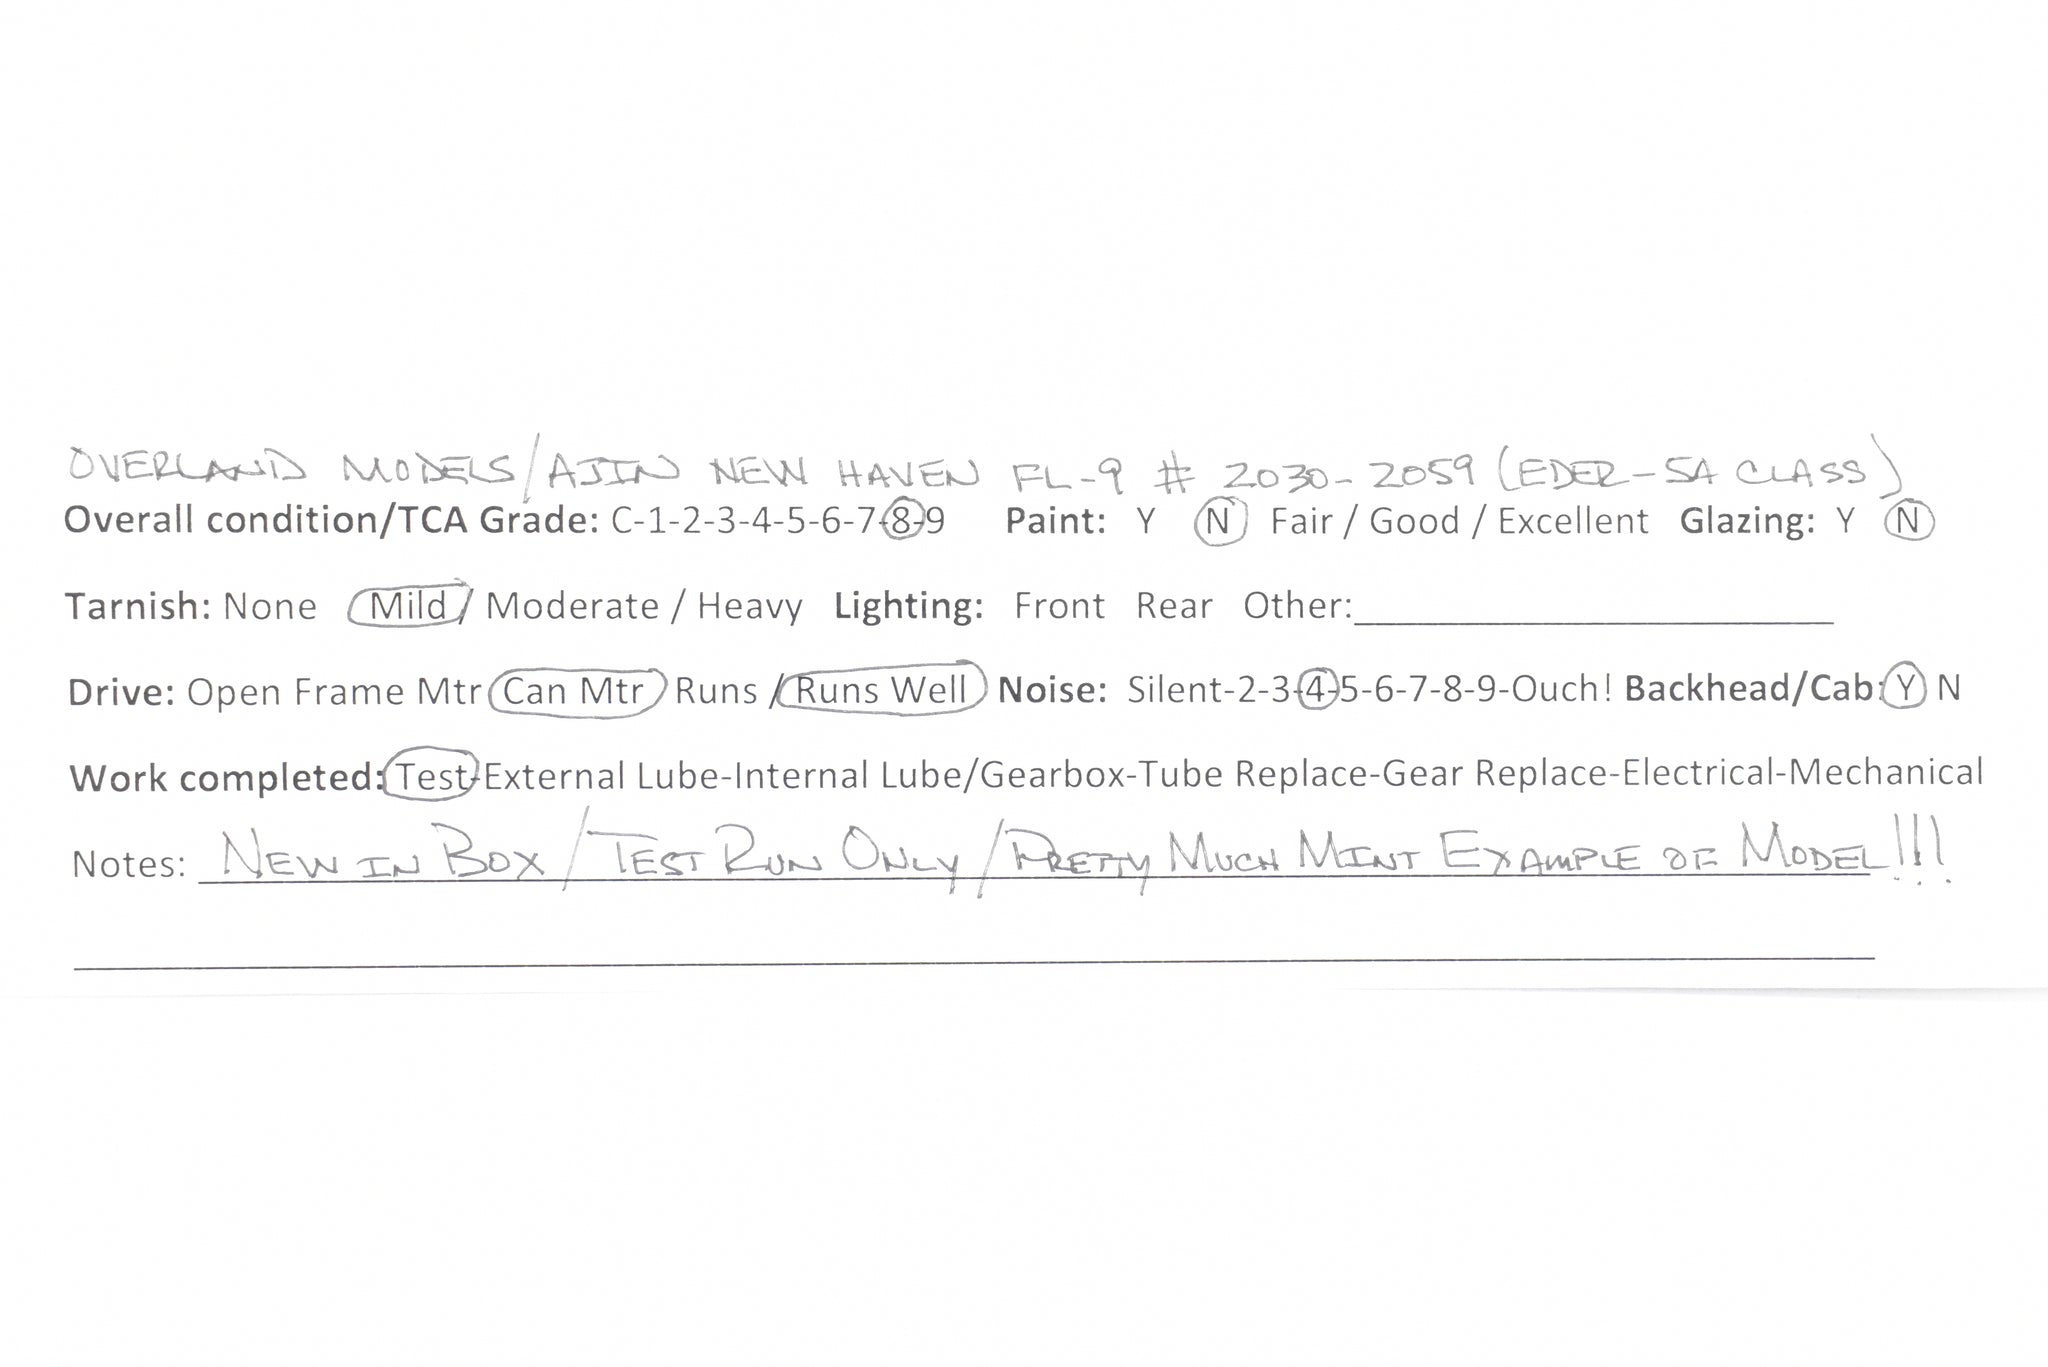 OVERLAND MODELS/AJIN NEW HAVEN FL-9 # 2030-2059 (EDER-5A CLASS)
Overall condition/TCA Grade: C-1-2-3-4-5-6-7-8-9 Paint: Y N Fair / Good / Excellent Glazing: Y N
Tarnish: None Mild / Moderate / Heavy Lighting: Front Rear Other:
Drive: Open Frame Mtr Can Mtr Runs / Runs Well Noise: Silent-2-3-4-5-6-7-8-9-Ouch! Backhead/Cab: Y N
Work completed: Test-External Lube-Internal Lube/Gearbox-Tube Replace-Gear Replace-Electrical-Mechanical
Notes: NEW IN BOX / TEST RUN ONLY / PRETTY MUCH MINT EXAMPLE OF MODEL!!!